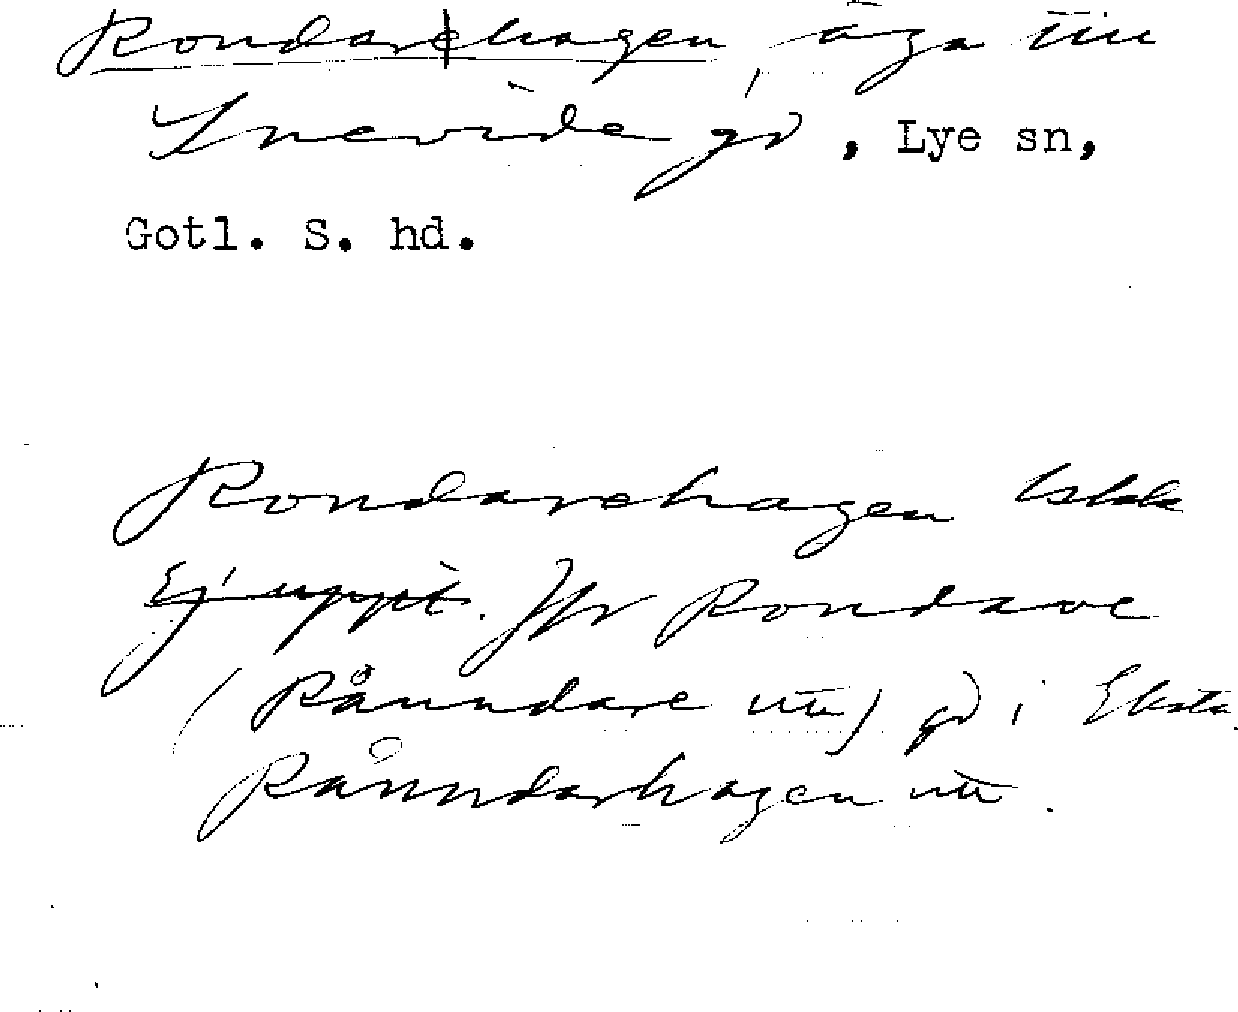 Rondarehagen, äga till
Snevide gd, Lye sn,
Gotl. S. hd.
Rondarehagen
Ej uppt. Jfr Rondare
(Rånndare utt) gd i Eksta.
Rånndarhagen utt.